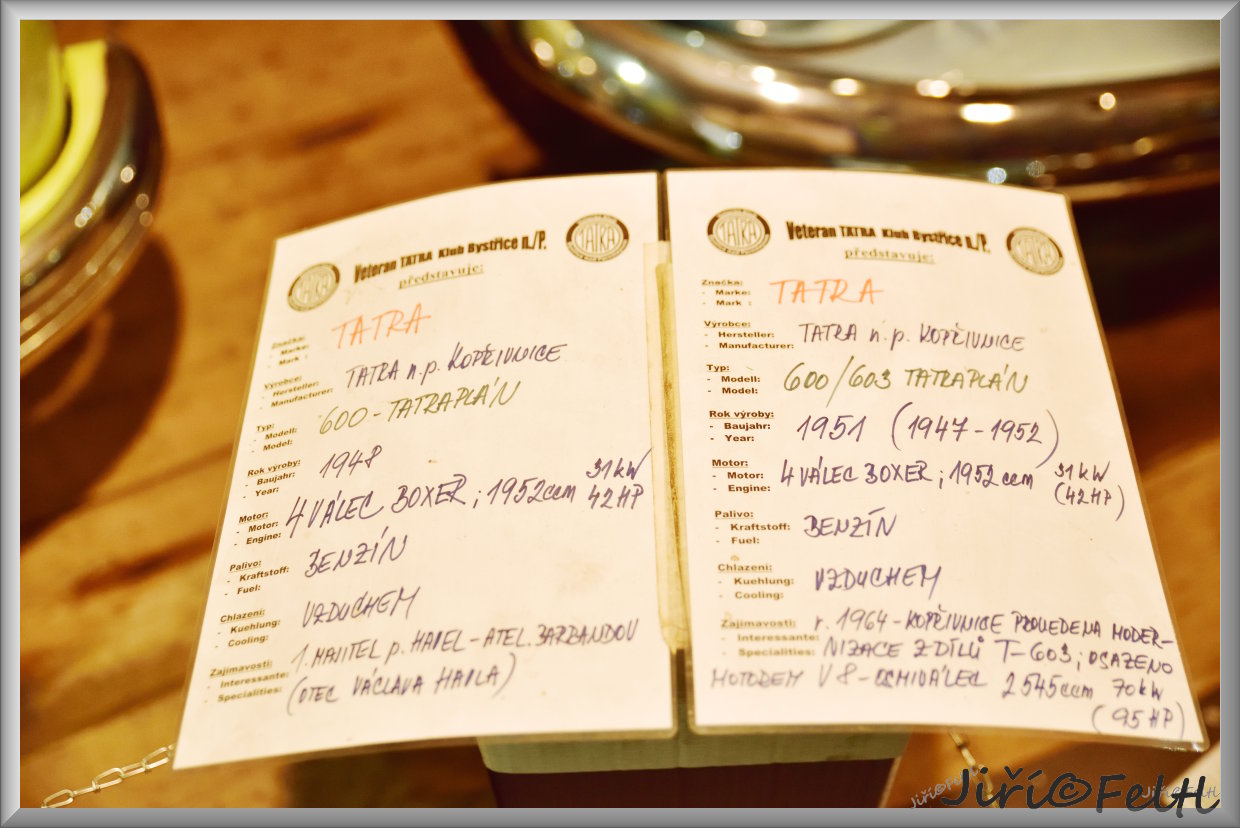 Veteran TATRA Klub Bystřice n./P.
představuje:
TATRA
Značka:
- Marke:
- Mark :
TATRA
Výrobce:
- Hersteller:
- Manufacturer:
TATRA n.p. KOPŘIVNICE
Typ:
- Modell:
- Model:
600 - TATRAPLÁN
Rok výroby:
- Baujahr:
- Year:
1948
Motor:
- Motor:
- Engine:
4 VÁLEC BOXER ; 1952 ccm 31 kW
42 HP
Palivo:
- Kraftstoff:
- Fuel:
BENZÍN
Chlazení:
- Kuehlung:
- Cooling:
VZDUCHEM
Zajímavosti:
- Interessante:
- Specialities:
1. MAJITEL p. HAVEL - ATEL. BARRANDOV
(OTEC VÁCLAVA HAVLA)
TATRA
Veteran TATRA Klub Bystřice n./P.
představuje:
TATRA
Značka:
- Marke:
- Mark :
TATRA
Výrobce:
- Hersteller:
- Manufacturer:
TATRA n.p. KOPŘIVNICE
Typ:
- Modell:
- Model:
600/603 TATRAPLÁN
Rok výroby:
- Baujahr:
- Year:
1951 (1947 - 1952)
Motor:
- Motor:
- Engine:
4 VÁLEC BOXER ; 1952 ccm 31 kW
(42 HP)
Palivo:
- Kraftstoff:
- Fuel:
BENZÍN
Chlazení:
- Kuehlung:
- Cooling:
VZDUCHEM
Zajímavosti:
- Interessante:
- Specialities:
r. 1964 - KOPŘIVNICE PROVEDENA MODER-
NIZACE Z DÍLŮ T-603 ; OSAZENO
MOTOREM V8 - OSMIVÁLEC 2 545 ccm 70 kW
(95 HP)
Jiří©FelH